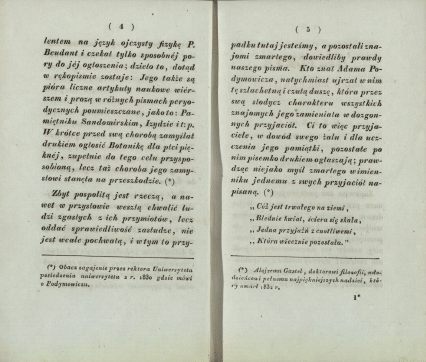 ( 4 )
lentem na język ojczysty fizykę P.
Beudant i czekał tylko sposobnéj po-
ry do jéj ogłoszenia; dzieło to, dotąd
w rękopismie zostaje: Jego także są
pióra liczne artykuły naukowe wiér-
szem i prozą w różnych pismach peryo-
dycznych poumieszczane, jako to: Pa-
miętniku Sandomirskim, Izydzie i t: p.
W krótce przed swą chorobą zamyślał
drukiem ogłosić Botanikę dla płci pię-
knéj, zupełnie do tego celu przyspo-
sobioną, lecz taż choroba jego zamy-
słowi stanęła na przeszkodzie. (*)
Zbyt pospolitą jest rzeczą, a na-
wet w przysłowie weszłą chwalić lu-
dzi zgasłych z ich przymiotów, lecz
oddać sprawiedliwość zasłudze, nie
jest wcale pochwałą, i w tym to przy-
(*) Obacz zagajenie przez rektora Uniwersytetu
posiedzenia uniwersytetu z r. 1830 gdzie mówi
o Podymowiczu.
( 5 )
padku tutaj jesteśmy, a pozostali zna-
jomi zmarłego, dowiedliby prawdy
naszego pisma. Kto znał Adama Po-
dymowicza, natychmiast ujrzał w nim
tę szlachetną i czułą duszę, która przez
swą słodycz charakteru wszystkich
znajomych jego zamieniała w dozgon-
nych przyjaciół. Ci to więc przyja-
ciele, w dowód swego żalu i dla ucz-
czenia jego pamiątki, pozostałe po
nim pisemko drukiem ogłaszają; praw-
dzę niejako myśl zmarłego w imie-
niku jednemu z swych przyjaciół na-
pisaną. (*)
„ Cóż jest trwałego na ziemi,
„ Blednie kwiat, ściera się skała,
„ Jedna przyjaźń z cnotliwemi,
„ Która wiecznie pozostała. "
(*) Alojzemu Gastel, doktorowi filozofii, mło-
dzieńcowi pełnemu najpiękniejszych nadziei, któ-
ry umarł 1832 r.
1*